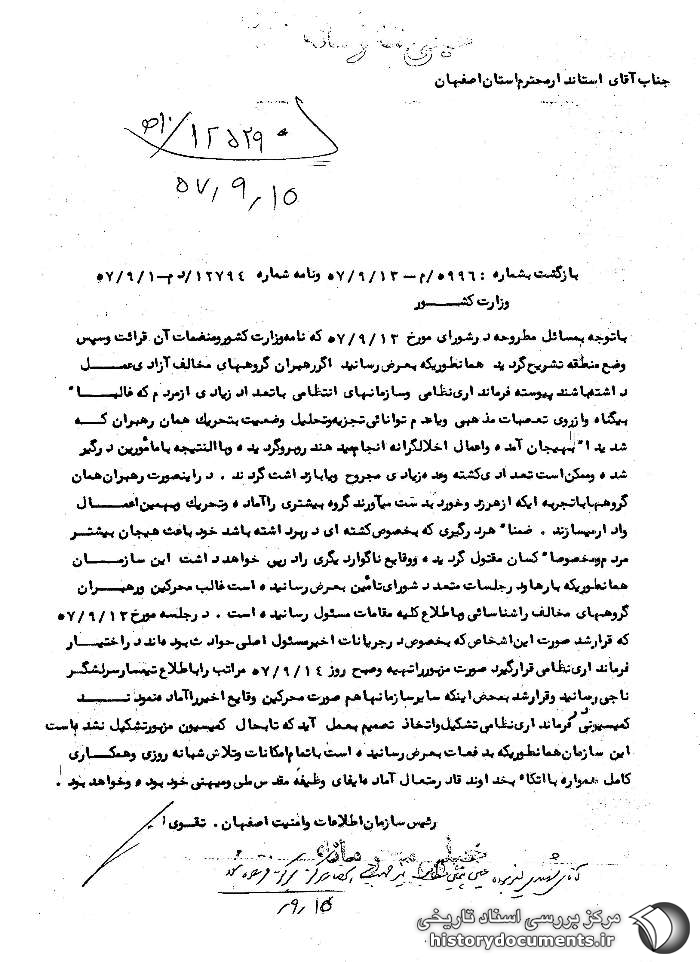 خیلی محرمانه
جناب آقای استاندار محترم استان اصفهان
۱۲۵۲۹/۱۰ه
۵۷٫۹٫۱۵
بازگشت بشماره : ۵۹۹۶/م – ۵۷/۹/۱۳ ونامه شماره ۱۲۷۹۴/دم–۵۷/۹/۱
وزارت کشور
باتوجه بمسائل مطروحه درشورای مورخ ۵۷/۹/۱۳ که نامه وزارت کشور ومنضمات آن قرائت وسپس
وضع منطقه تشریح گردید همانطوریکه بعرض رسانید اگر رهبران گروههای مخالف آزادی عمل
داشته باشند پیوسته فرمانداری نظامی وسازمانهای انتظامی باتعداد زیادی ازمردم که غالبا"
بیگناه وازروی تعصبات مذهبی ویاعدم توانائی تجزیه وتحلیل وضعیت بتحریک همان رهبران که
شدیدا" بهیجان آمده واعمال اخلالگرانه انجام میدهند روبرو گردیده وبالنتیجه بامأمورین درگیر
شده وممکن است تعدادی کشته وعده زیادی مجروح ویابازداشت گردند . دراینصورت رهبران همان
گروهها باتجربه ایکه ازهر زدوخورد بدست میآورند گروه بیشتری را آماده وتحریک وبهمین اعمال
وادار میسازند . ضمنا" هر درگیری که بخصوص کشته ای دربرداشته باشد خود باعث هیجان بیشتر
مردم ومخصوصا" کسان مقتول گردیده ووقایع ناگوار دیگری رادرپی خواهد داشت این سازمان
همانطوریکه بارها ودرجلسات متعدد شورای تأمین بعرض رسانیده است غالب محرکین ورهبران
گروههای مخالف راشناسائی وباطلاع کلیه مقامات مسئول رسانیده است . درجلسه مورخ ۵۷/۹/۱۳
که قرارشد صورت این اشخاص که بخصوص درجریانات اخیر مسئول اصلی حوادث بوده اند دراختیار
فرمانداری نظامی قرارگیرد صورت مزبور راتهیه وصبح روز ۵۷/۹/۱۴ مراتب راباطلاع تیمسار سرلشگر
ناجی رسانید وقرارشد بمحض اینکه سایر سازمانها هم صورت محرکین وقایع اخیر را آماده نمودند
کمیسیونی درفرمانداری نظامی تشکیل واتخاذ تصمیم بعمل آید که تابحال کمیسیون مزبور تشکیل نشده است
این سازمان همانطوریکه بدفعات بعرض رسانیده است باتمام امکانات وتلاش شبانه روزی وهمکاری
کامل همواره با اتکاء بخداوند قادر متعال آماده ایفای وظیفه مقدس ملی ومیهنی خود بوده وخواهد بود .
رئیس سازمان اطلاعات وامنیت اصفهان . تقوی
خیلی محرمانه
۹٫۱۵
مرکز بررسی اسناد تاریخی
historydocuments.ir